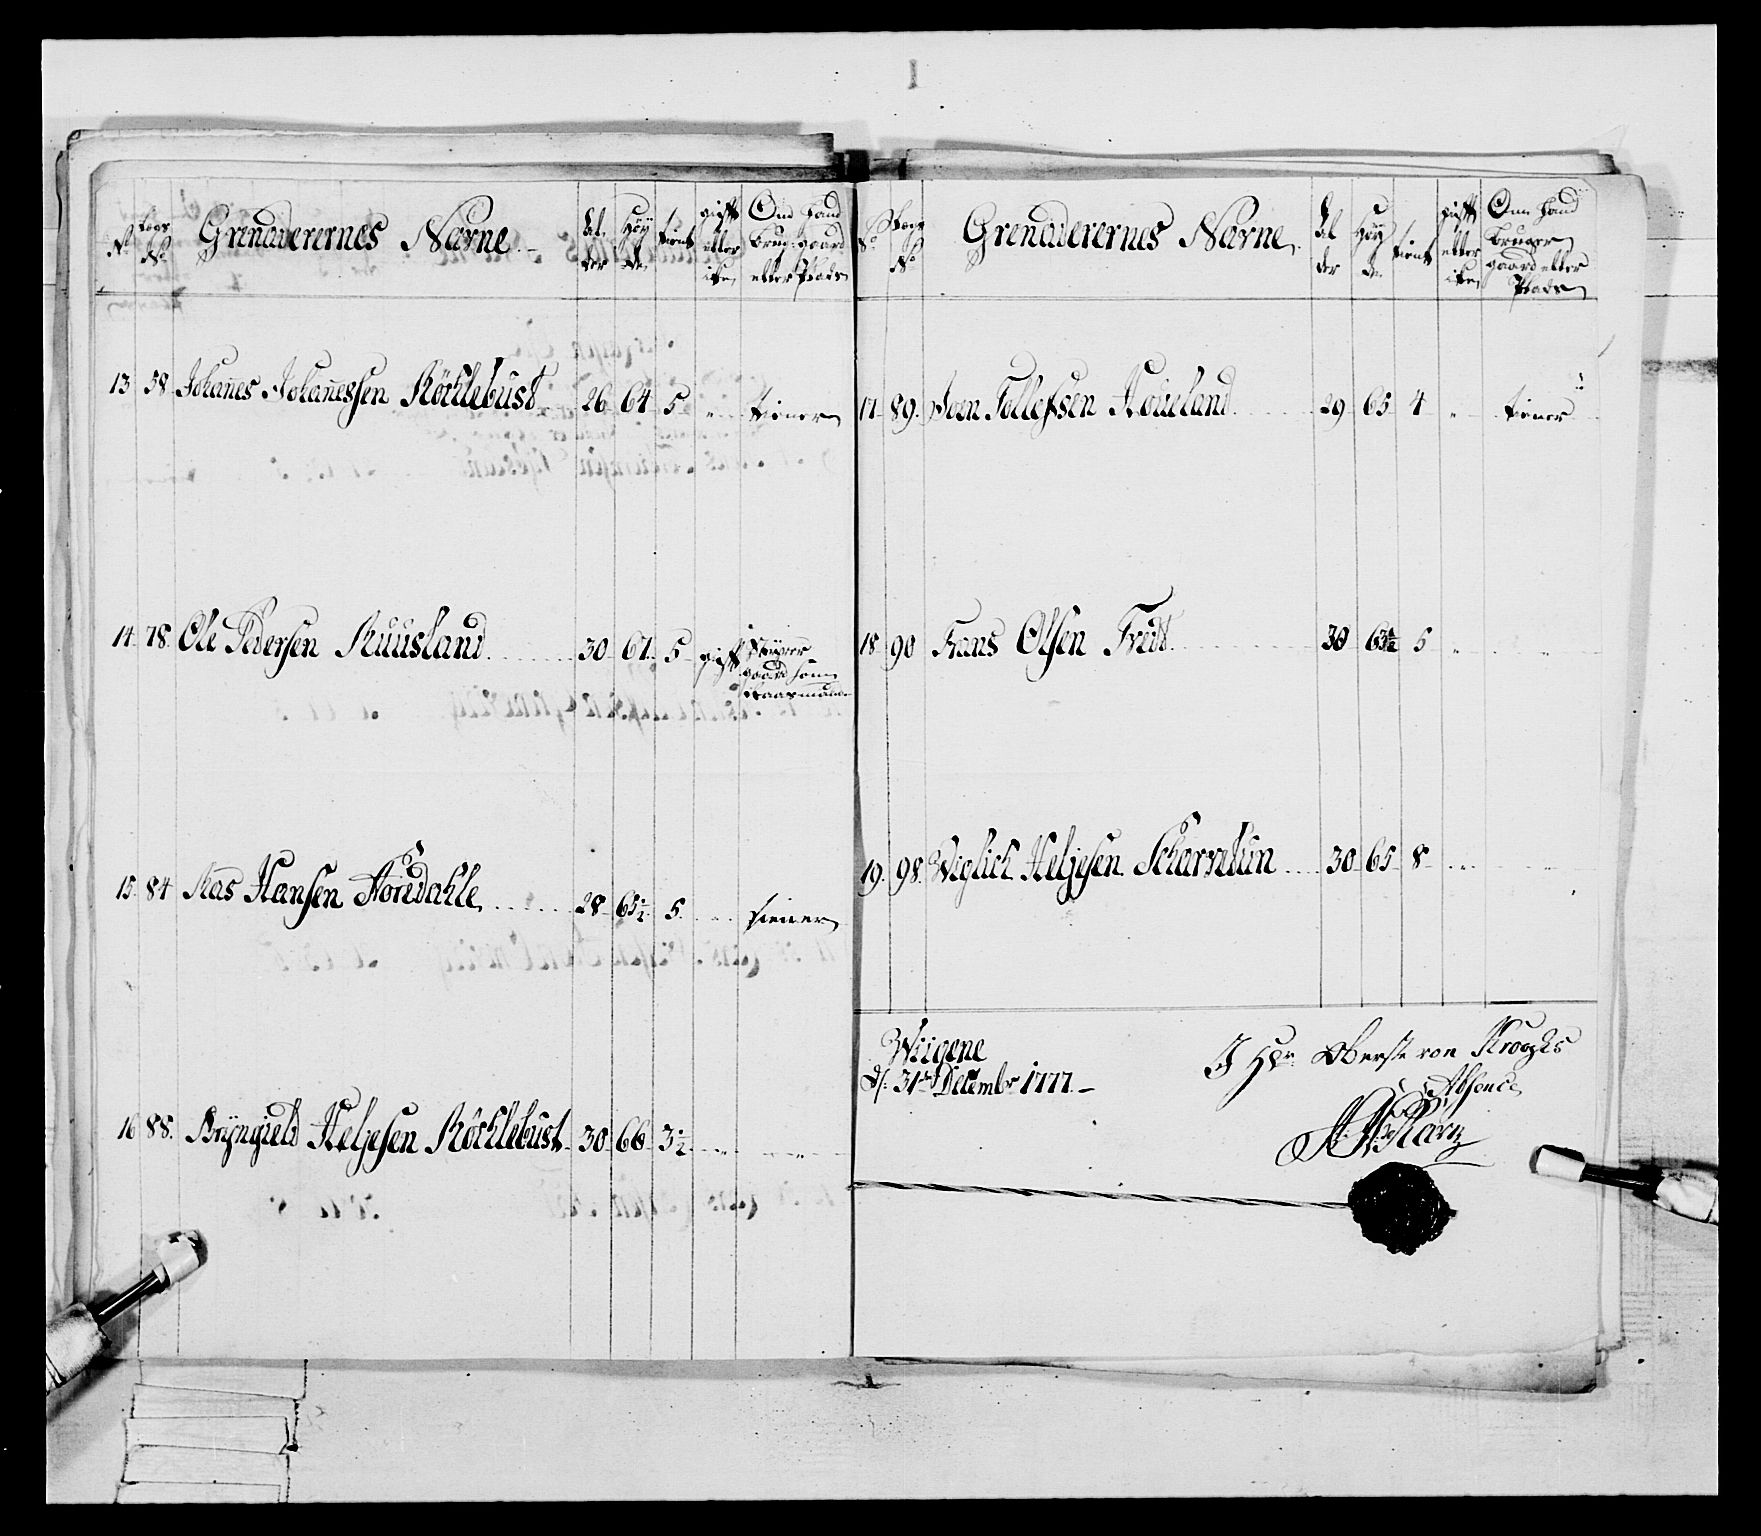 No Laegs No Grenaderernes Navne Al der Höy de tient gift eller ikke Om Hand bruger gaard eller Plads
13 58 Johañes Johañessen Röchlebust 26 64 5 " tiener
14 78 Ole Pedersen Ruusland 30 67 5 gift
gaard som
15 84 Ras Hansen Aaredahle 28 65½ 5 tiener
16 88 Bryngield Heljesen Röchlebust 30 66 3½
No Laegs No Grenaderernes Navne Al der Höy de tient gift eller ikke Om Hand bruger gaard eller Plads
17 89 Joen Tollefsen Houeland 29 65 4 " tiener
18 90 Hans Olsen Tredt 30 63½ 5 "
19 98 Wiglich Heljesen Scharretun 30 65 8
Wiigene
d. 31te Decembr 1777
I Hr. Oberste von Kroghs
Absence